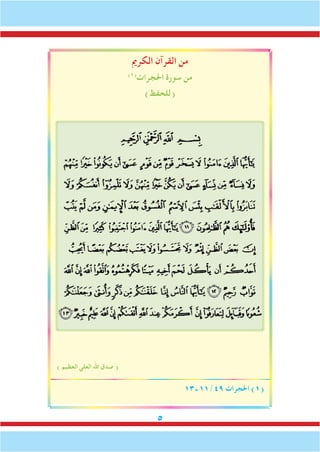 من القرآن الكريم
من سورة الحجرات(١)
(للحفظ)
بِسْمِ ٱللَّهِ ٱلرَّحْمَٰنِ ٱلرَّحِيمِ
يَٰٓأَيُّهَا ٱلَّذِينَ ءَامَنُوا۟ لَا يَسْخَرْ قَوْمٌ مِّن قَوْمٍ عَسَىٰٓ أَن يَكُونُوا۟ خَيْرًا مِّنْهُمْ
وَلَا نِسَآءٌ مِّن نِّسَآءٍ عَسَىٰٓ أَن يَكُنَّ خَيْرًا مِّنْهُنَّ وَلَا تَلْمِزُوٓا۟ أَنفُسَكُمْ وَلَا
تَنَابَزُوا۟ بِٱلْأَلْقَٰبِ بِئْسَ ٱلِٱسْمُ ٱلْفُسُوقُ بَعْدَ ٱلْإِيمَٰنِ وَمَن لَّمْ يَتُبْ
فَأُو۟لَٰٓئِكَ هُمُ ٱلظَّٰلِمُونَ ﴿١١﴾ يَٰٓأَيُّهَا ٱلَّذِينَ ءَامَنُوا۟ ٱجْتَنِبُوا۟ كَثِيرًا مِّنَ ٱلظَّنِّ
إِنَّ بَعْضَ ٱلظَّنِّ إِثْمٌ وَلَا تَجَسَّسُوا۟ وَلَا يَغْتَب بَّعْضُكُم بَعْضًا أَيُحِبُّ
أَحَدُكُمْ أَن يَأْكُلَ لَحْمَ أَخِيهِ مَيْتًا فَكَرِهْتُمُوهُ وَٱتَّقُوا۟ ٱللَّهَ إِنَّ ٱللَّهَ
تَوَّابٌ رَّحِيمٌ ﴿١٢﴾ يَٰٓأَيُّهَا ٱلنَّاسُ إِنَّا خَلَقْنَٰكُم مِّن ذَكَرٍ وَأُنثَىٰ وَجَعَلْنَٰكُمْ
شُعُوبًا وَقَبَآئِلَ لِتَعَارَفُوٓا۟ إِنَّ أَكْرَمَكُمْ عِندَ ٱللَّهِ أَتْقَىٰكُمْ إِنَّ ٱللَّهَ عَلِيمٌ خَبِيرٌ ﴿١٣﴾
(صدق الله العلي العظيم)
(١) الحجرات ٤٩ / ١١-١٣
٥